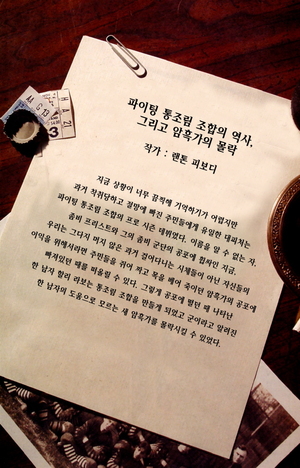 파이팅 통조림 조합의 역사,
그리고 암흑가의 몰락
작가 : 렌톤 피보디
지금 상황이 너무 끔찍해 기억하기가 어렵지만
과거 착취당하고 절망에 빠진 주민들에게 유일한 대피처는
파이팅 통조림 조합의 프로 시즌 데뷔였다. 이름을 알 수 없는 자,
좀비 프리스트와 그의 좀비 군단의 공포에 휩싸인 지금,
우리는 그다지 머지 않은 과거 걸어다니는 시체들이 아닌 자신들의
이익을 위해서라면 주민들을 쥐어 짜고 목을 베어 죽이던 암흑가의 공포에
빠져있던 때를 떠올릴 수 있다. 그렇게 공포에 떨던 때 나타난
한 남자 할리 라보는 통조림 조합을 만들게 되었고 군이라고 알려진
한 남자의 도움으로 모르는 새 암흑가를 몰락시킬 수 있었다.
AA G 13
HA 21